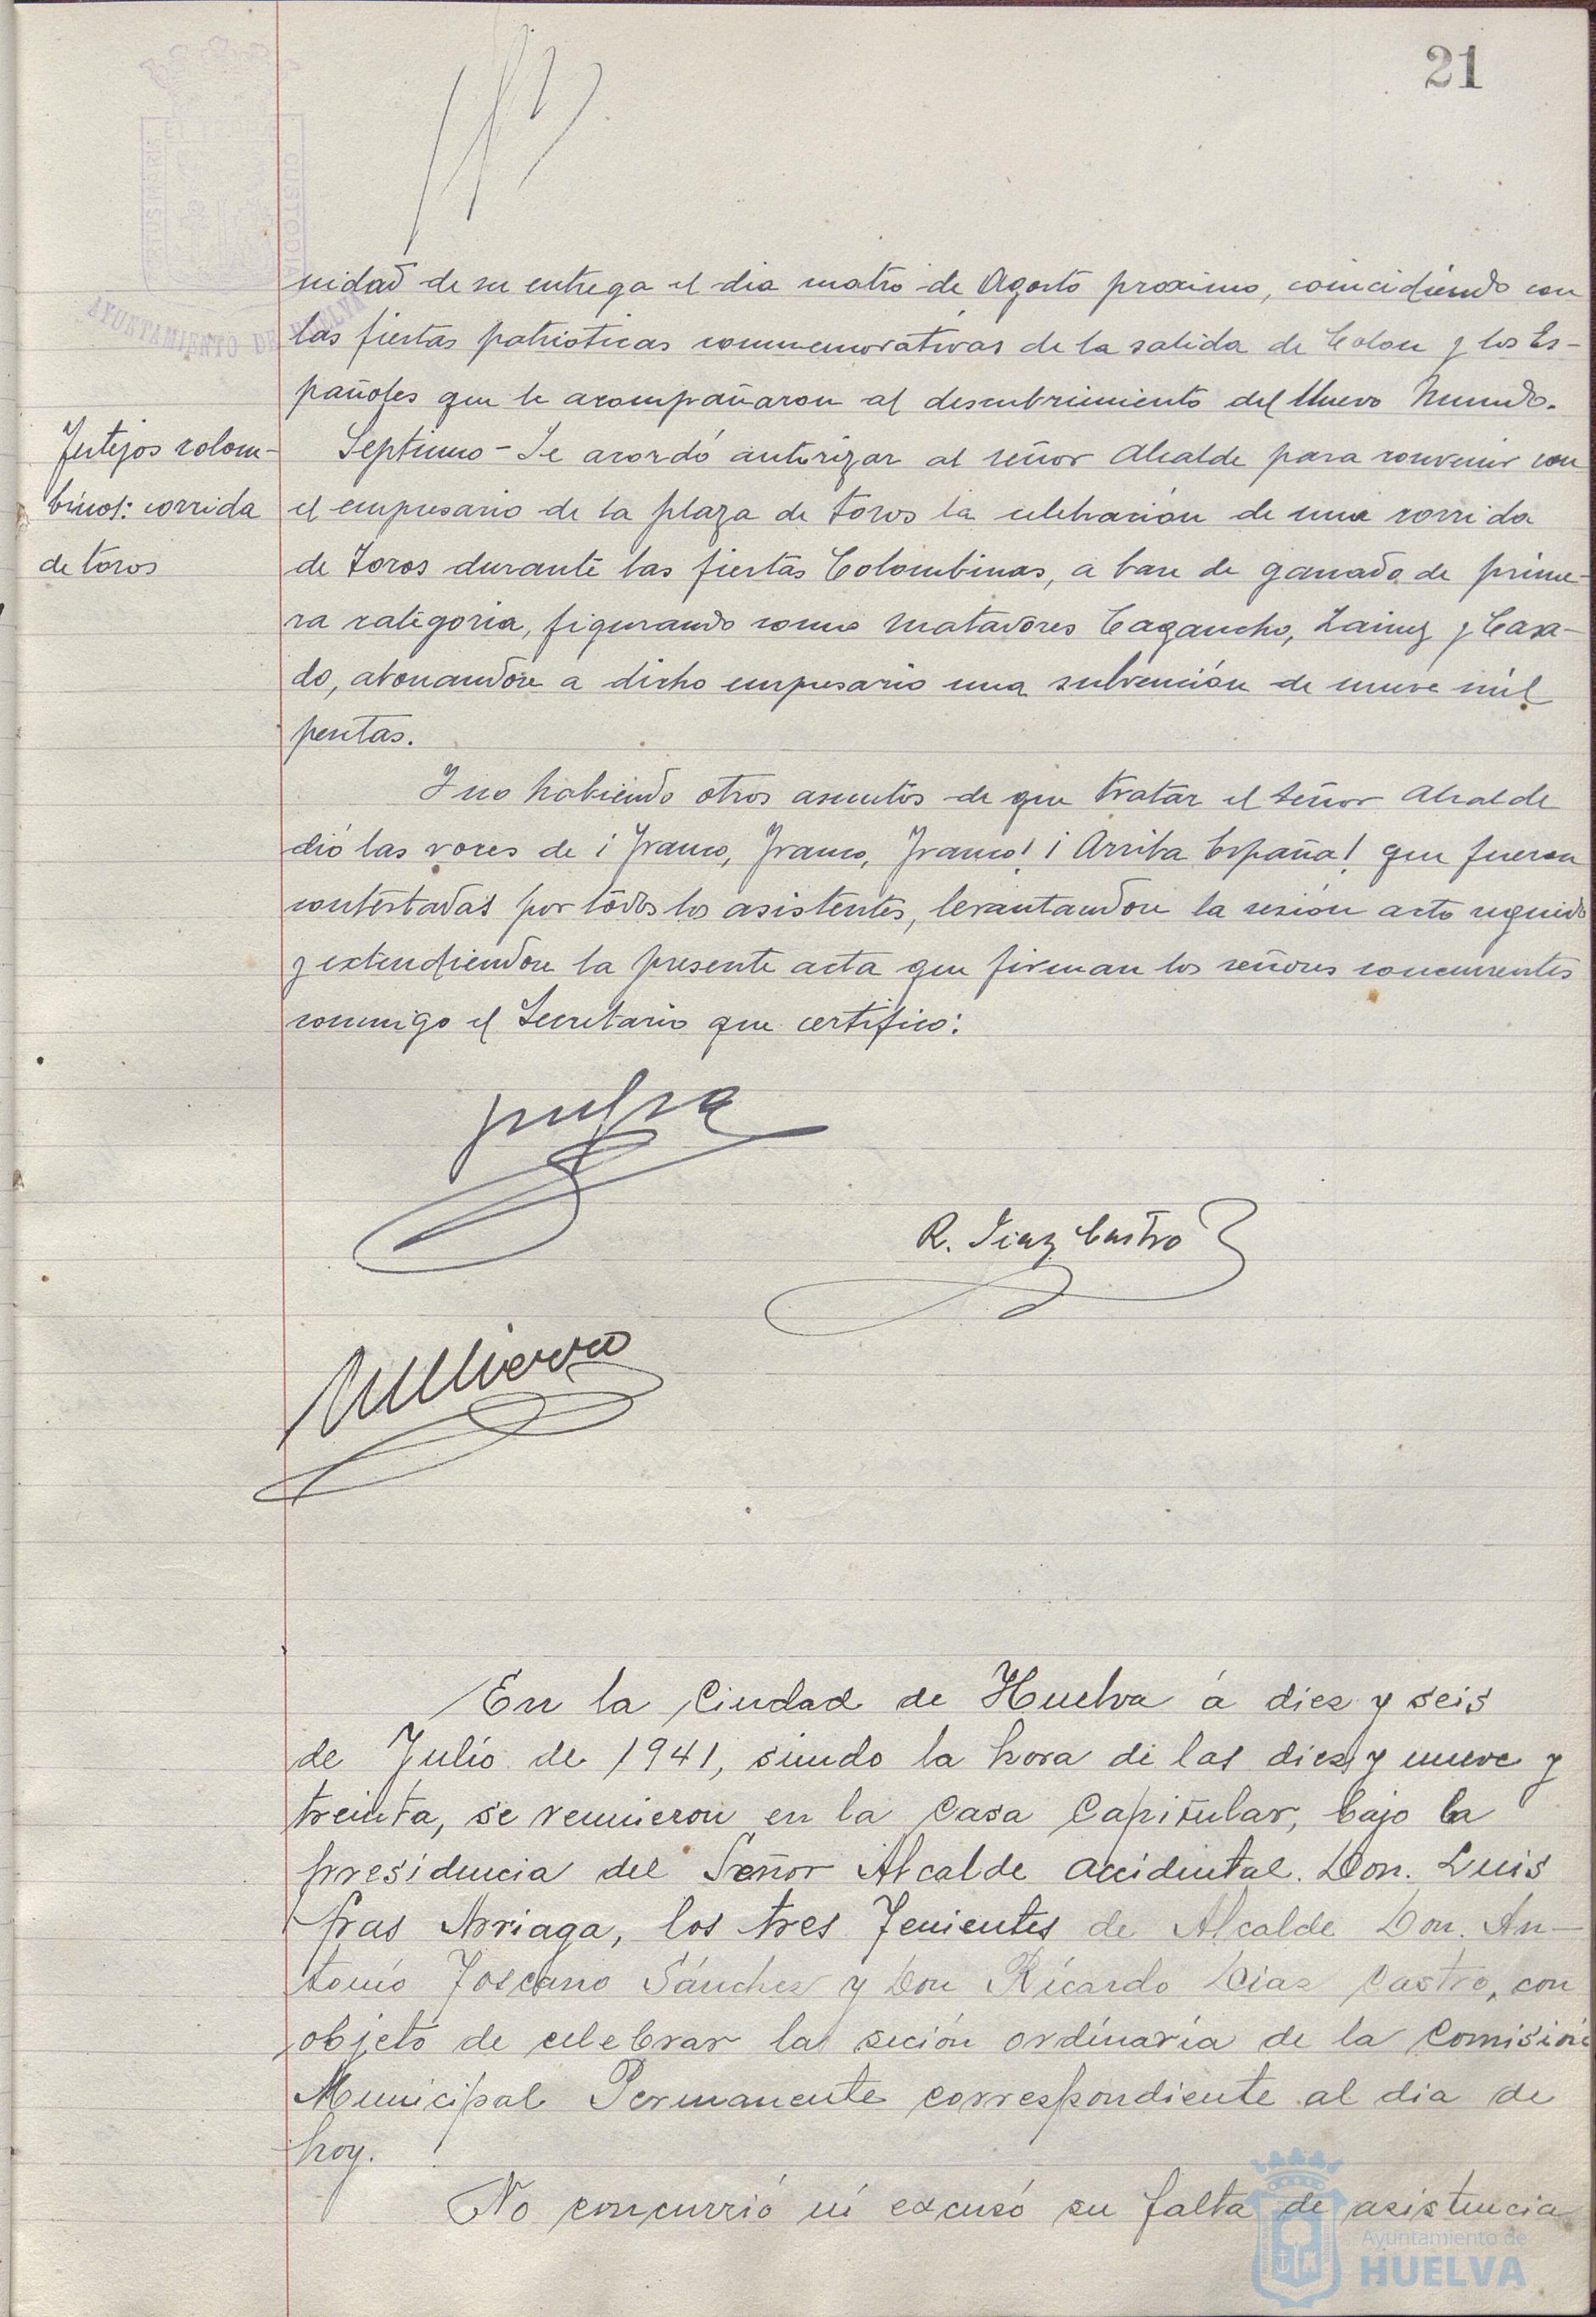 21
AYUNTAMIENTO DE HUELVA
nidad de su entrega el dia cuatro de Agosto proximo, coincidiendo con
las fiestas patrioticas conmemorativas de la salida de Colon y los Es-
pañoles que le acompañaron al descubrimiento del Nuevo Mundo.
Festejos colom-
binos: corrida
de toros
Septimo - Se acordó autorizar al señor Alcalde para convenir con
el empresario de la plaza de toros la celebración de una corrida
de Toros durante las fiestas Colombinas, a base de ganado de prime-
ra categoria, figurando como matadores Cagancho, Lainez y Casa-
do, abonandose a dicho empresario una subvención de nueve mil
pesetas.
Y no habiendo otros asuntos de que tratar el señor Alcalde
dió las voces de ¡Franco, Franco, Franco! ¡Arriba España! que fueron
contestadas por todos los asistentes, levantandose la sesión acto seguido
y extendiendose la presente acta que firman los señores concurrentes
conmigo el Secretario que certifico:
R. Diaz Castro
En la Ciudad de Huelva á diez y seis
de Julio de 1941, siendo la hora de las diez y nueve y
treinta, se reunieron en la Casa Capitular, bajo la
presidencia del Señor Alcalde accidental. Don. Luis
Fras Arriaga, los tres Tenientes de Alcalde Don. An-
tonio Toscano Sánchez y Don Ricardo Diaz Castro, con
objeto de celebrar la seción ordinaria de la Comisión
Municipal Permanente correspondiente al dia de
hoy.
No concurrió ni excusó su falta de asistencia
Ayuntamiento de
HUELVA